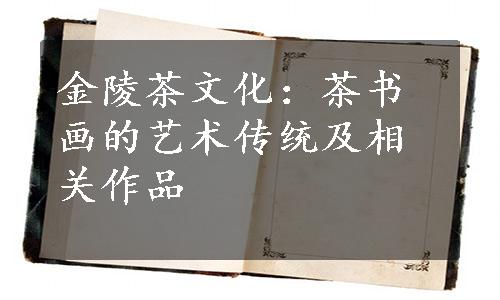 金陵茶文化：茶书
画的艺术传统及相
关作品